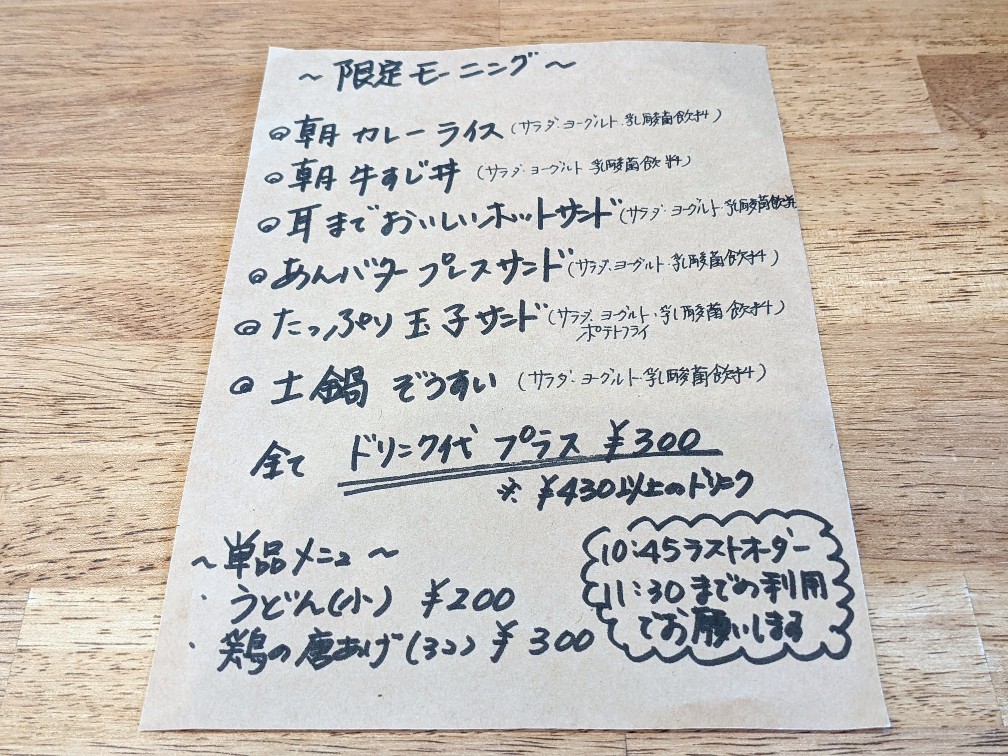 ～限定モーニング～
◎朝カレーライス(サラダ・ヨーグルト・乳酸菌飲料)
◎朝牛すじ丼(サラダ・ヨーグルト 乳酸菌飲料)
◎耳までおいしいホットサンド(サラダ・ヨーグルト・乳酸菌飲料
◎あんバタープレスサンド(サラダ・ヨーグルト・乳酸菌飲料)
◎たっぷり玉子サンド(サラダ・ヨーグルト・乳酸菌飲料)
ポテトフライ
◎土鍋ぞうすい(サラダ・ヨーグルト・乳酸菌飲料)
全て ドリンク代プラス ¥300
※¥430以上のドリンク
～単品メニュ～
・うどん(小) ¥200
・鶏の唐あげ(3コ) ¥300
10:45ラストオーダー
11:30までの利用
でお願いします